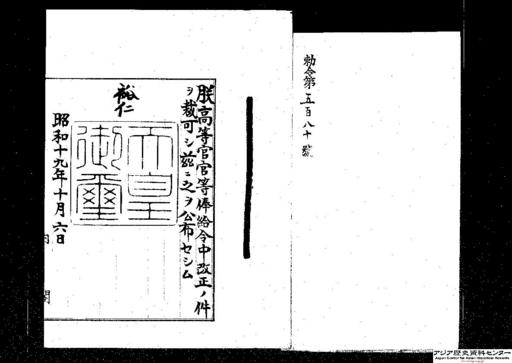 勅令第五百八十號
朕高等官官等俸給令中改正ノ件
ヲ裁可シ茲ニ之ヲ公布セシム
裕仁
天皇
御璽
昭和十九年十月六日
内閣
アジア歴史資料センター
Japan Center for Asian Historical Records